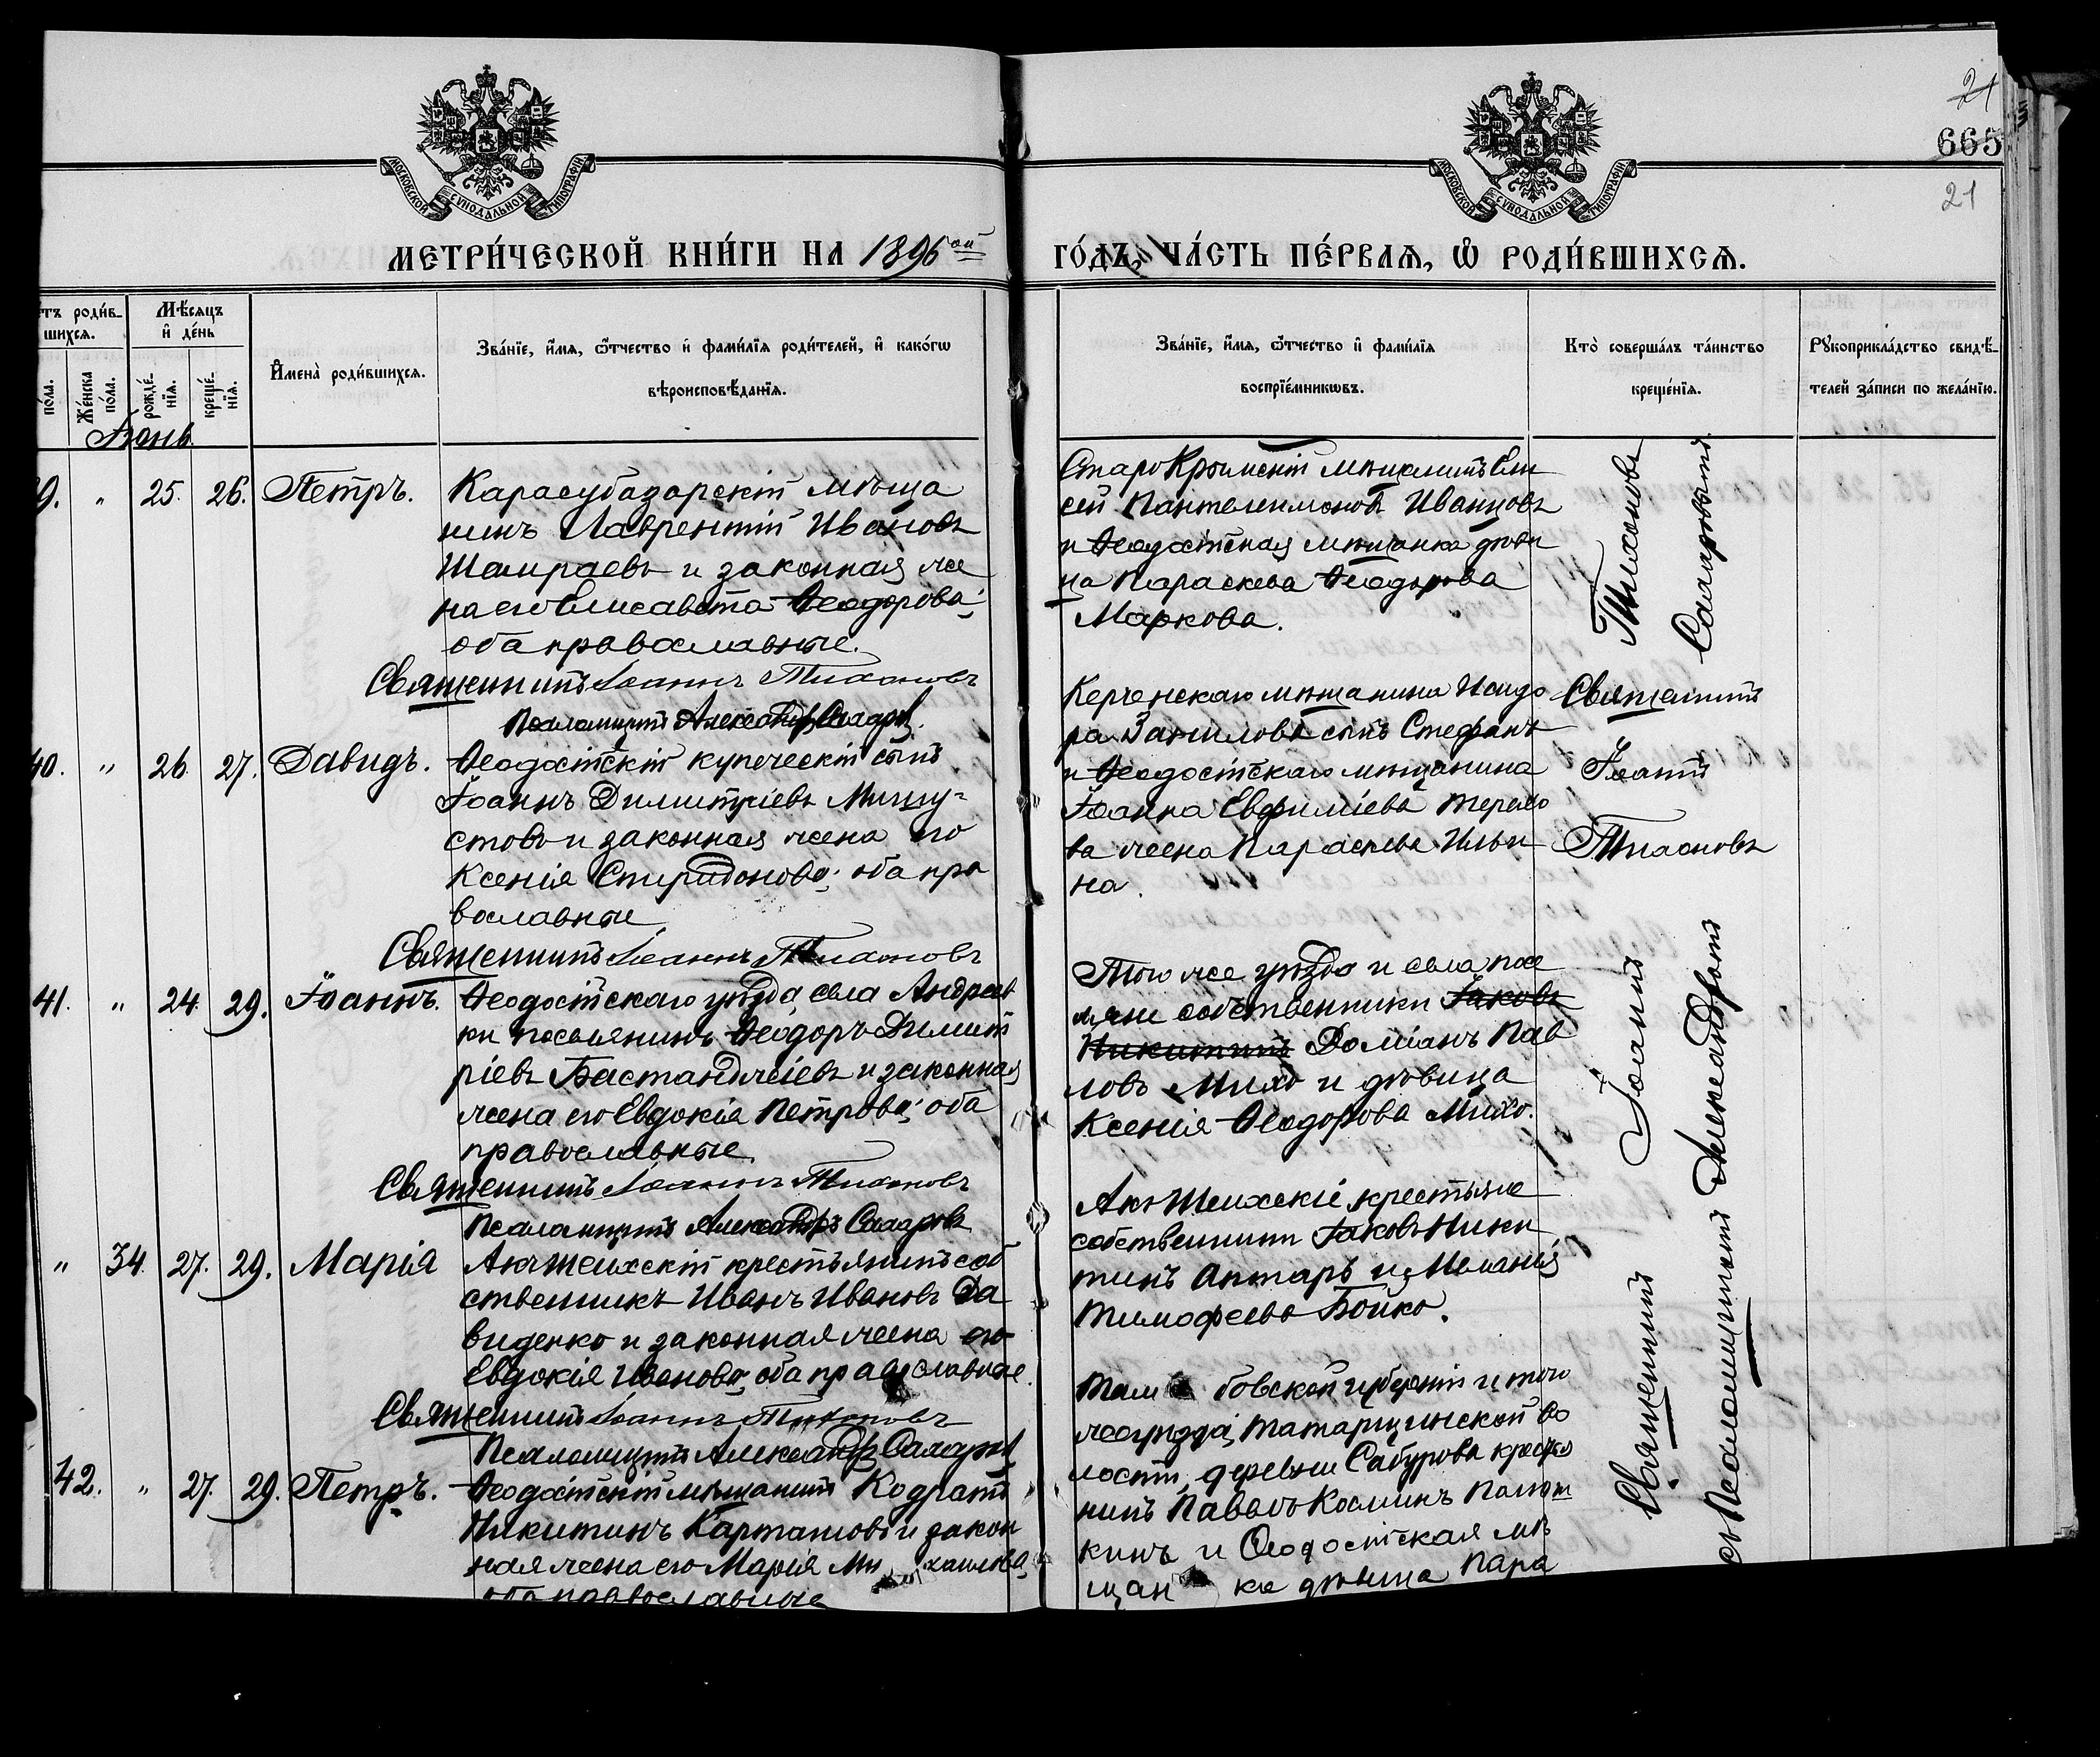 МОСКОВСКОЙ СѴНОДАЛЬНОЙ ТИПОГРАФІИ
МОСКОВСКОЙ СѴНОДАЛЬНОЙ ТИПОГРАФІИ
21
665
21
МЕТРИ́ЧЕСКОЙ КНИ́ГИ НА 1896 ой
ГО́ДЪ, ЧА́СТЬ ПЕ́РВАѦ, Ѽ РОДИ́ВШИХСѦ.
етъ роди́в-
шихсѧ.
Мѣ́сѧцъ
и҆ де́нь
по́ла.
Же́нска
по́ла.
рожде́-
нїѧ.
креще́-
нїѧ.
И҆мена̀ роди́вшихсѧ.
Зва́нїе, и҆́мѧ, ѻ҆́тчество и҆ фами́лїѧ роди́телей, и҆ како́гѡ
вѣроисповѣ́данїѧ.
Зва́нїе, и҆́мѧ, ѻ҆́тчество и҆ фами́лїѧ
воспрїе́мникѡвъ.
Кто̀ соверша́лъ та́инство
креще́нїѧ.
Рꙋкоприкла́дство свидѣ́-
телей за́писи по жела́нїю.
Іюнь
9. " 25. 26. Петръ.
Карасубазарскій мѣща
нинъ Лаврентій Ивановъ
Шамраевъ и законная же
на его Елисавета Ѳеодорова;
оба православные.
Священникъ Іоаннъ Тихоновъ
Псаломщикъ Александръ
СтароКрымскій мѣщанинъ Ели
сей Пантелеимоновъ Иванцовъ
и Ѳеодосійская мѣщанка дѣви
ца Параскева Ѳеодорова
Маркова.
40. " 26. 27. Давидъ.
Ѳеодосійскій купеческій сынъ
Іоаннъ Димитріевъ Мишу-
стовъ и законная жена его
Ксенія Спиридонова; оба пра
вославные
Священникъ Іоаннъ Тихоновъ
Керченскаго мѣщанина Исидо
ра Данилова сынъ Стефанъ
и Ѳеодосійскаго мѣщанина
Іоанна Евфиміева Терехо
ва жена Параскева Ильи
на.
Священникъ
Іоаннъ
Тихоновъ
41. " 24. 29. Іоаннъ.
Ѳеодосійскаго уѣзда села Андреев
ки поселянинъ Ѳеодоръ Димит
ріевъ Бастанджіевъ и законная
жена его Евдокія Петрова; оба
православные.
Священникъ Іоаннъ Тихоновъ
Псаломщикъ Александръ
Того же уѣзда и села посе
ляне собственники Іаковъ
Никитинъ Доміанъ Пав
ловъ Михо и дѣвица
Ксенія Ѳеодорова Михо.
" 34. 27. 29. Марія
Акъ-Шеихскій крестьянинъ соб
ственникъ Иванъ Ивановъ Да
виденко и законная жена его
Евдокія Иванова; оба православные.
Священникъ Іоаннъ Тихоновъ
Псаломщикъ Александръ
Акъ-Шеихскіе крестьяне
собственники Іаковъ Ники
тинъ Антаръ и Меланія
Тимофеева Бойко.
42. " 27. 29. Петръ.
Ѳеодосійскій мѣщанинъ Кодратъ
Никитинъ Карташовъ и закон
ная жена его Марія Ми хаилова,
оба православные
Там бовской губерніи и того
же уѣзда, Татарщинской во
лости, деревни Сабурова кресть
нинъ Павелъ Косминъ
кинъ и Ѳеодосійская мѣ
щан ка дѣвица Пара
Священникъ Іоаннъ Тихоновъ
съ Псаломщикомъ Александромъ